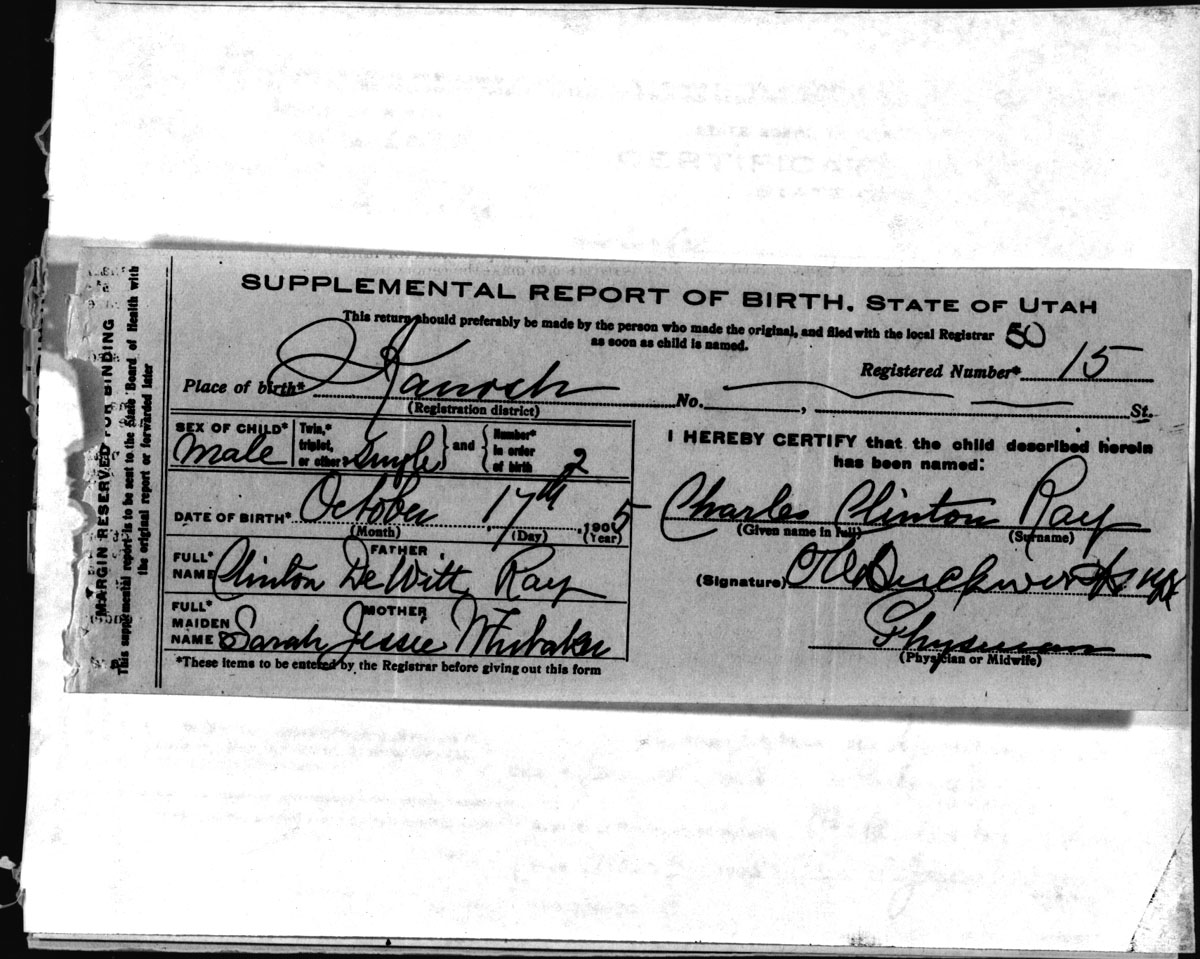 SUPPLEMENTAL REPORT OF BIRTH. STATE OF UTAH
This return should preferably be made by the person who made the original, and filed with the local Registrar
as soon as child is named.
50
Registered Number* 15
Place of birth* Kanosh No. , St.
(Registration district)
SEX OF CHILD* Male
Twin,* triplet, or other Single and Number* in order of birth 2
DATE OF BIRTH* October 17th 1905
(Month) (Day) (Year)
FULL* NAME FATHER Clinton DeWitt Ray
FULL* MAIDEN NAME MOTHER Sarah Jessie Whitaker
*These items to be entered by the Registrar before giving out this form
I HEREBY CERTIFY that the child described herein
has been named:
Charles Clinton Ray
(Given name in full) (Surname)
(Signature)
Physician
(Physician or Midwife)
MARGIN RESERVED FOR BINDING
This supplemental report is to be sent to the State Board of Health with
the original report or forwarded later